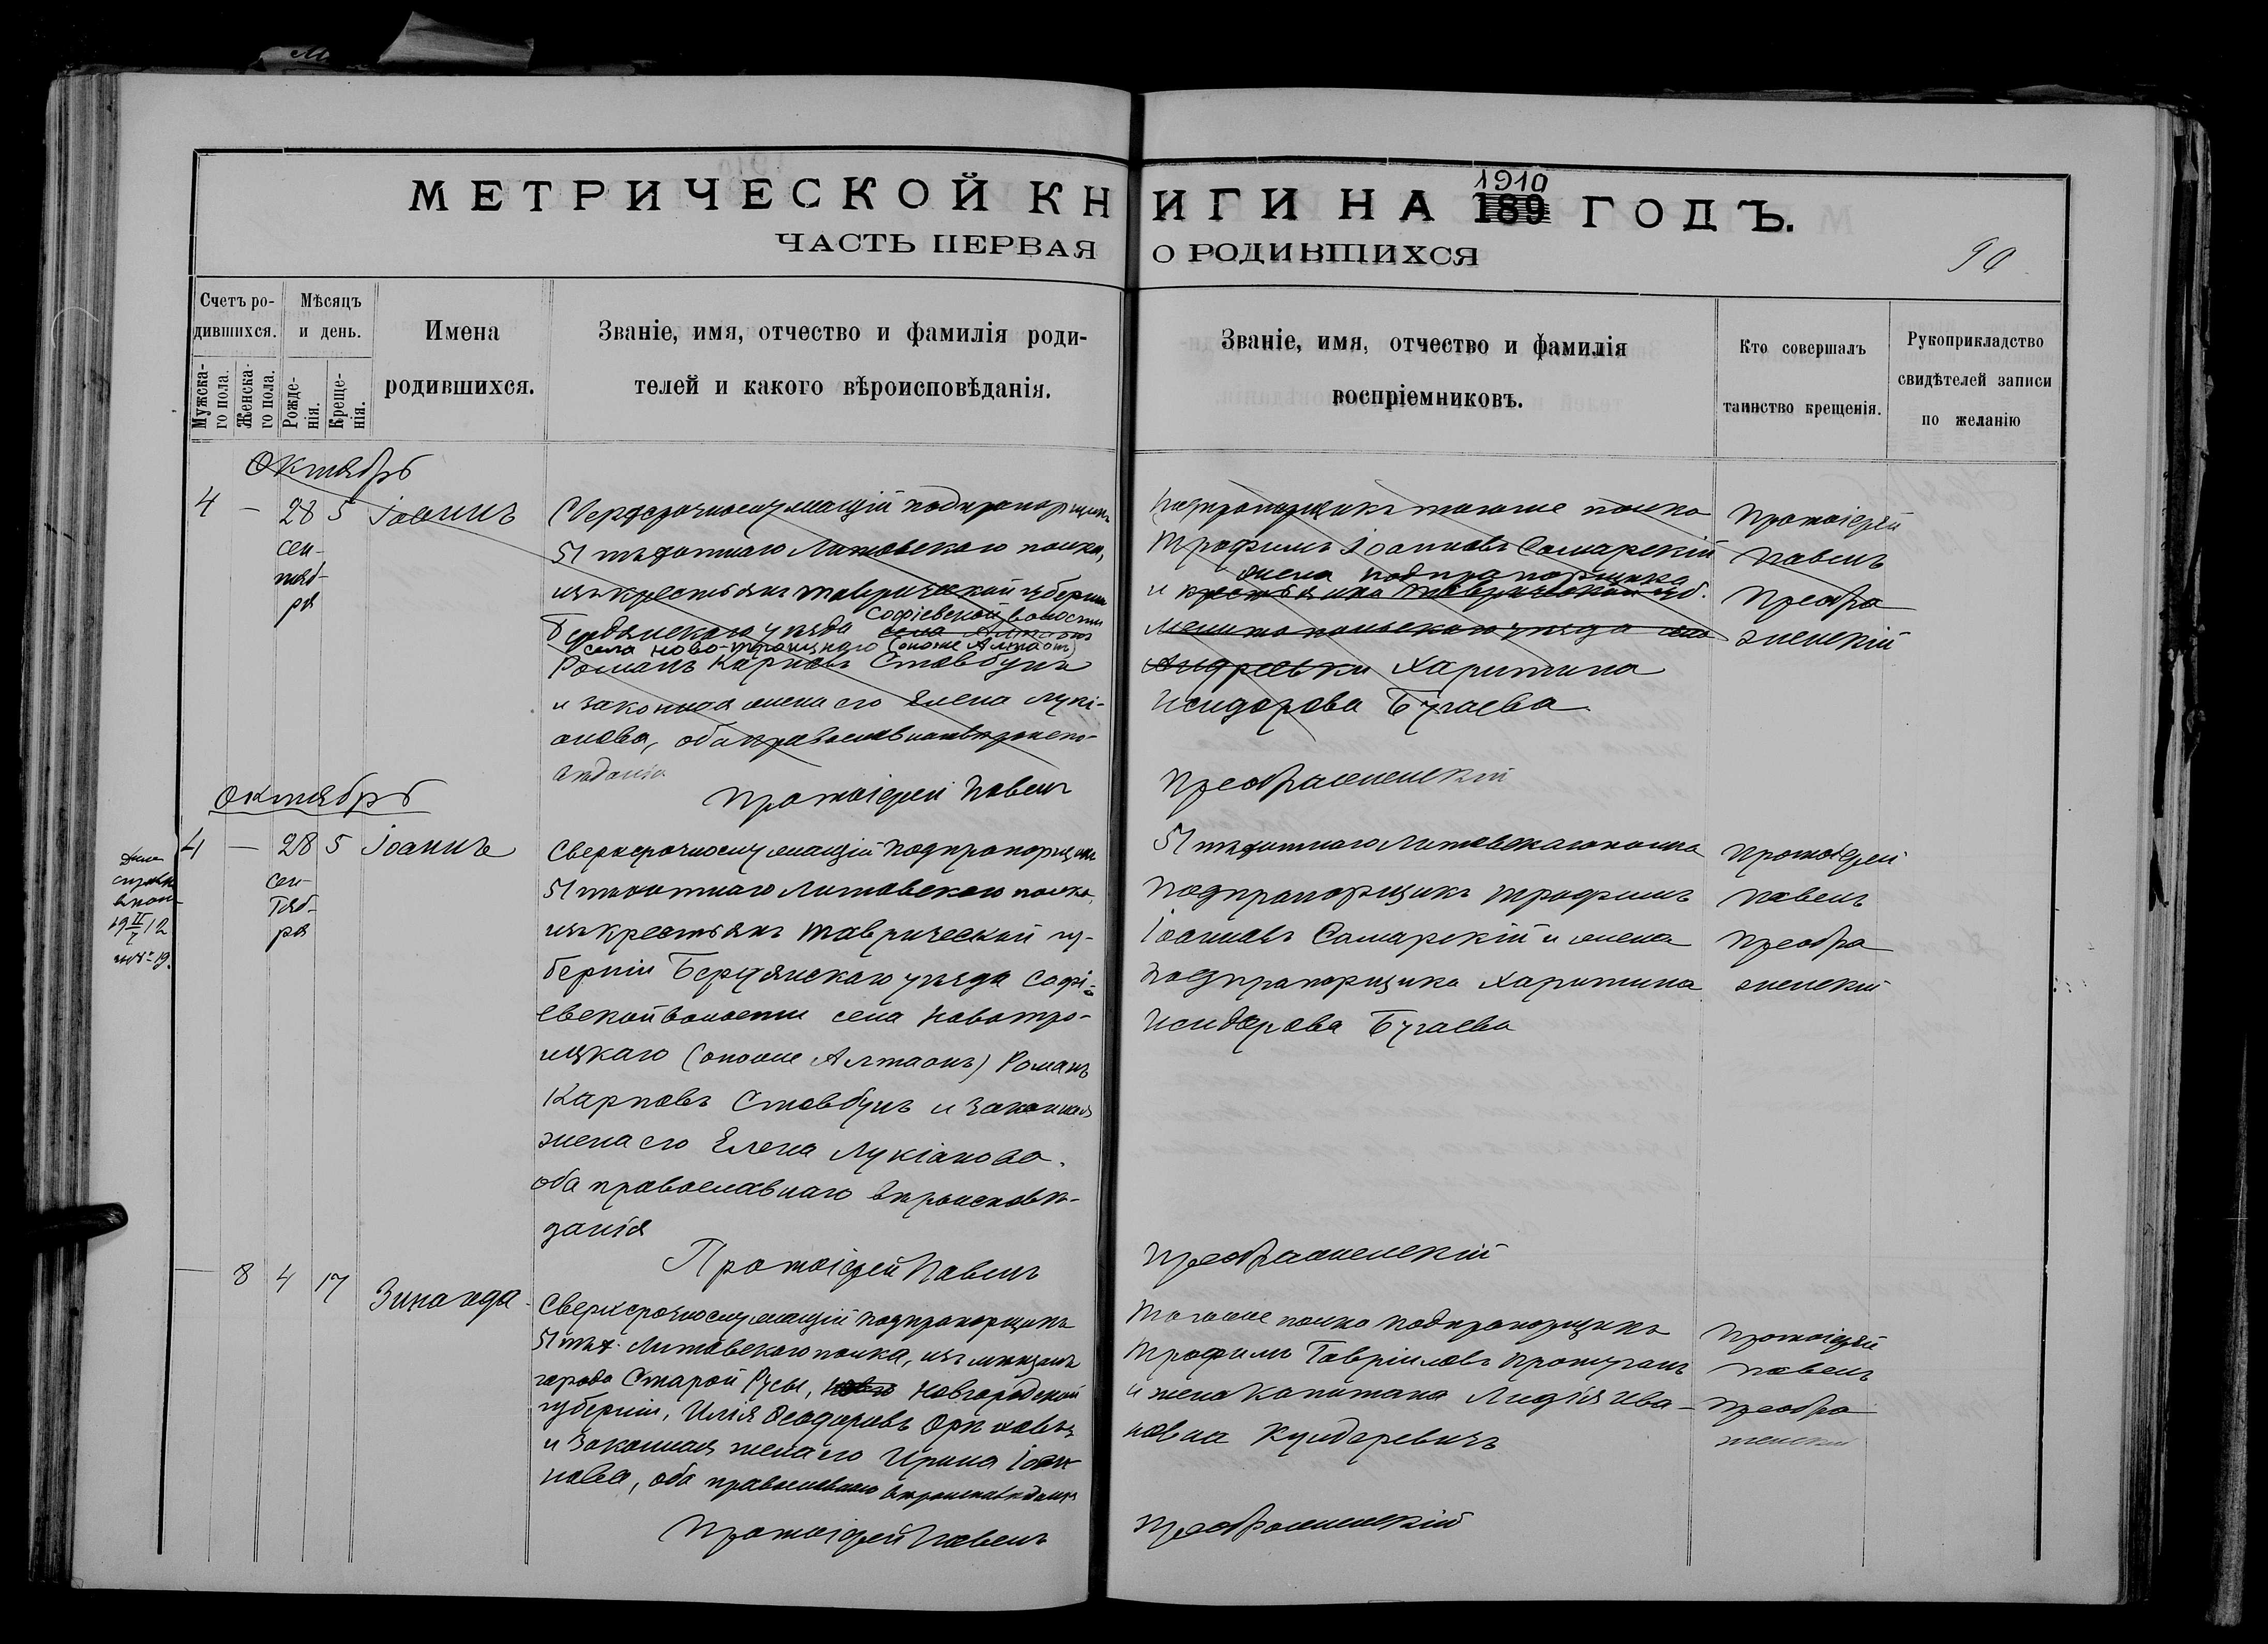 МЕТРИЧЕСКОЙ КНИГИ НА 1910 189 ГОДЪ.
ЧАСТЬ ПЕРВАЯ О РОДИВШИХСЯ
Счетъ ро-
дившихся.
Мужска-
го пола.
Женска-
го пола.
Мѣсяцъ
и день.
Рожде-
нія.
Креще-
нія.
Имена
родившихся.
Званіе, имя, отчество и фамилія роди-
телей и какого вѣроисповѣданія.
Званіе, имя, отчество и фамилія
воспріемниковъ.
Кто совершалъ
таинство крещенія.
Рукоприкладство
свидѣтелей записи
по желанію
Октябрь
4 — 28 5 Іоаннъ
сен-
тяб-
ря
Сверхсрочнослужащій подпрапорщикъ
51 пѣхотнаго Литовскаго полка,
изъ крестьянъ Таврической губерніи
Бердянскаго уѣзда Софіевской волости
села Алтаонъ
села Ново-Троицкаго (онъ же Алтаонъ)
Романъ Карповъ Стовбунъ
и законная жена его Елена Лукі-
анова, оба православнаго вѣроиспо-
вѣданія
Протоіерей Павелъ
Подпрапорщикъ того же полка
Трофимъ Іоанновъ Самарскій
жена подпрапорщика
и крестьянка Таврической губ.
Мелитопольскаго уѣзда село
Андреевки Харитина
Исидорова Бугаева
Преображенскій
Протоіерей
Павелъ
Преобра
женскій
Октябрь
4 — 28 5 Іоаннъ
сен-
тяб-
ря
19 II/7 12
Сверхсрочнослужащій подпрапорщикъ
51 пѣхотнаго Литовскаго полка,
изъ крестьянъ Таврической гу-
берніи Бердянскаго уѣзда Софі-
евской волости села Новотро-
ицкаго (онъ же Алтаонъ) Романъ
Карповъ Стовбунъ и законная
жена его Елена Лукіанова,
оба православнаго вѣроисповѣ-
данія
Протоіерей Павелъ
51 пѣхотнаго Литовскаго полка
подпрапорщикъ Трофимъ
Іоанновъ Самарскій и жена
подпрапорщика Харитина
Исидорова Бугаева
Преображенскій
Протоіерей
Павелъ
Преобра
женскій
— 8 4 17 Зинаида
Сверхсрочнослужащій подпрапорщикъ
51 пѣх. Литовскаго полка, изъ мѣщанъ
города Старой Русы, Новгородской
губерніи, Илія Ѳеодоровъ
и законная жена его Ирина Іоан-
нова, оба православнаго вѣроисповѣданія
Протоіерей Павелъ
Того же полка подпрапорщикъ
Трофимъ Гавріиловъ
и жена капитана Лидія Ива-
новна Кундаревичъ
Преображенскій
Протоіерей
Павелъ
Преобра
женскій